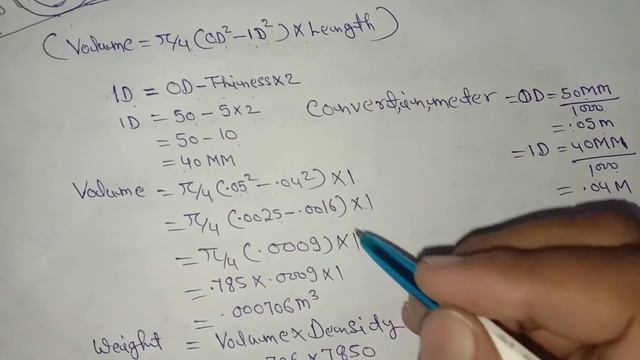 (Volume = π/4 (OD² - ID²) × Leangth)
ID = OD - Thikness × 2
ID = 50 - 5 × 2
= 50 - 10
= 40 MM
Convert,in,meter = OD = 50MM
1000
= .05m
= ID = 40MM
1000
= .04 M
Volume = π/4 (.05² - .04²) × 1
= π/4 (.0025 - .0016) × 1
= π/4 (.0009) × 1
= .785 × .0009 × 1
= .000706 m³
Weight = Volume × Deansidy
706 × 7850